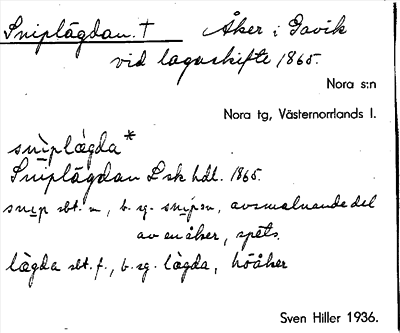 Sniplägdan. † Åker i Gavik
vid lagaskifte 1865.
Nora s:n
Nora tg, Västernorrlands l.
snìplæ̀gda*
Sniplägdan L sk hdl. 1865.
snip sbt. n, b. sg. snipen, avsmalnande del
av en åker, spets.
lägda sbt. f., b. sg. lägda, höåker
Sven Hiller 1936.